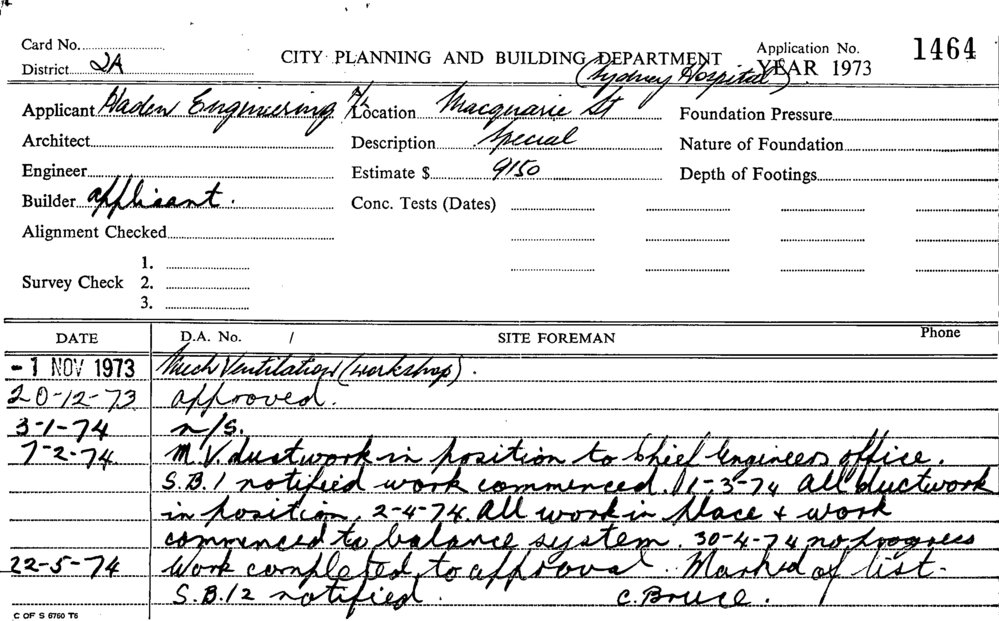 Card No.
District 2A
CITY PLANNING AND BUILDING DEPARTMENT
Application No.
YEAR 1973
1464
(Sydney Hospital)
Applicant Haden Engineering P/L
Location Macquarie St
Foundation Pressure
Architect
Description Special
Nature of Foundation
Engineer
Estimate $ 9150
Depth of Footings
Builder applicant.
Conc. Tests (Dates)
Alignment Checked
Survey Check
1.
2.
3.
DATE
D.A. No. /
SITE FOREMAN
Phone
- 1 NOV 1973 Mech Ventilation (workshop).
20-12-73 approved.
3-1-74 n/s.
7-2-74. M.V. ductwork in position to Chief Engineers office.
S.B.1 notified work commenced. 1-3-74 All ductwork
in position. 2-4-74. All work in place + work
commenced to balance system. 30-4-74 no progress
22-5-74 Work completed to approval. Marked of list.
S.B.12 notified. C. Bruce.
C OF S 6750 T6